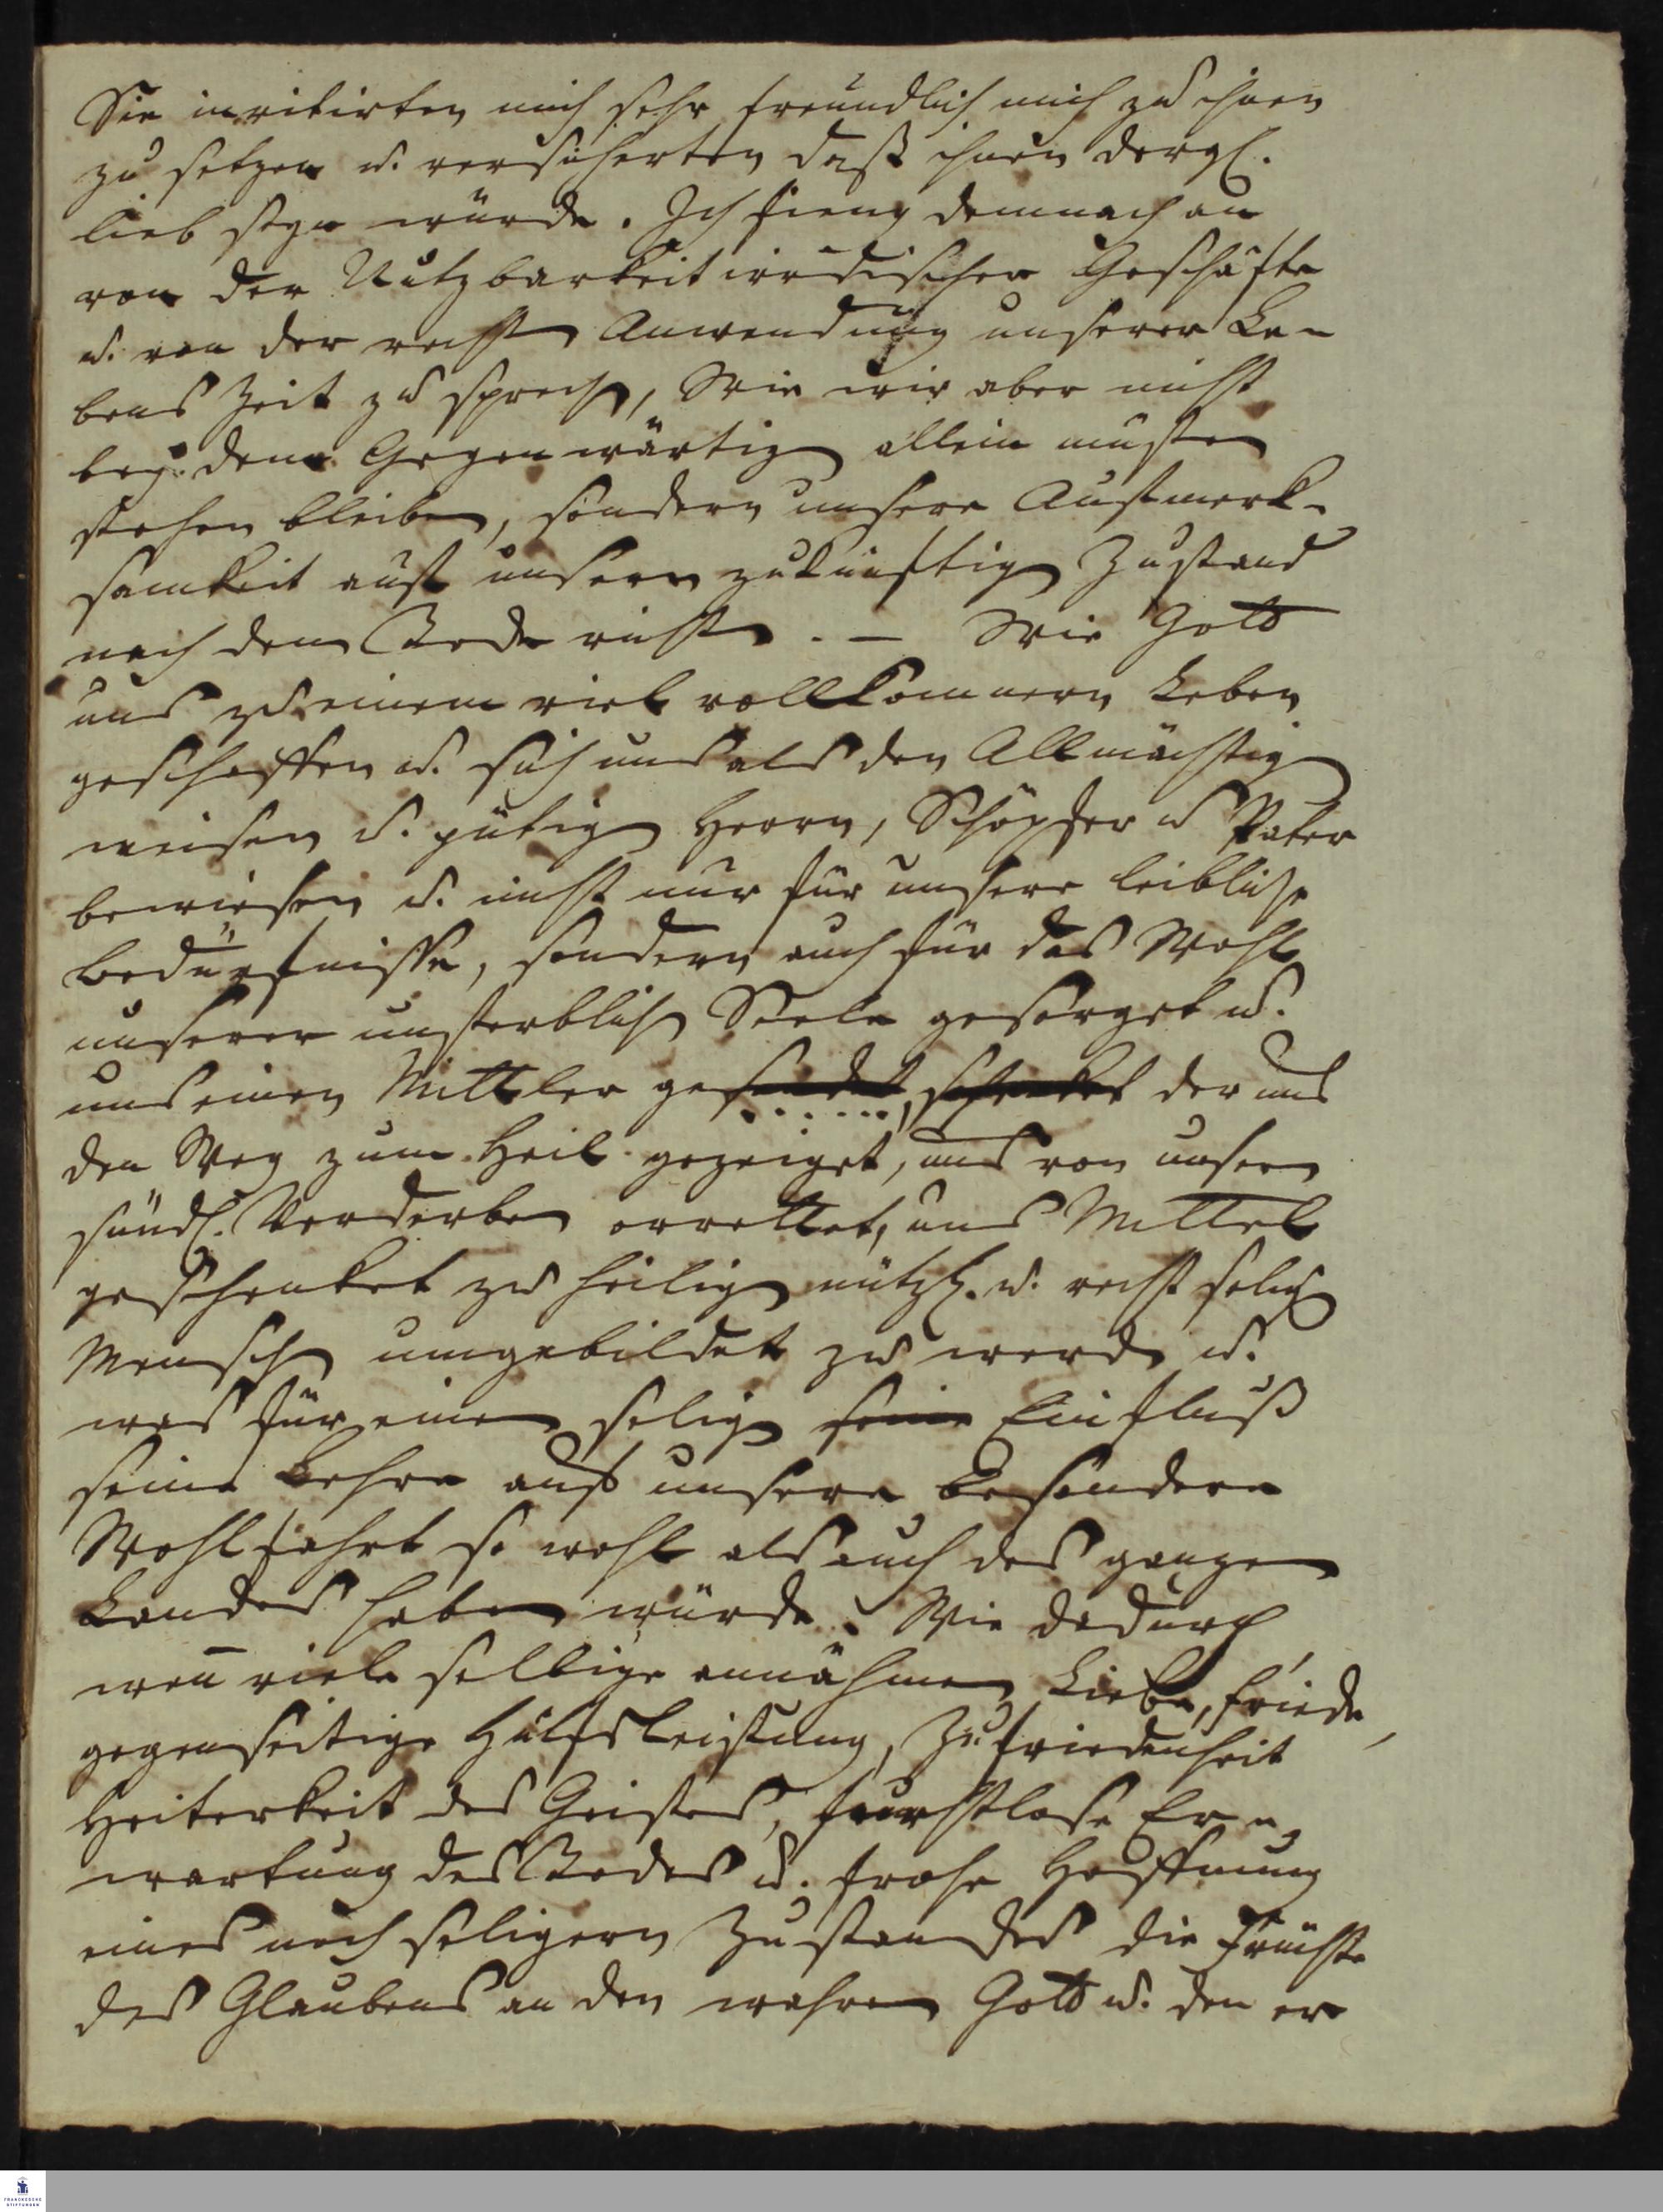 Sie invitirten mich sehr freundlich mich zu ihnen
zu setzen u. versicherten daß ihnen dergl.
lieb seyn würde. Ich fieng demnach an
von der Nutzbarkeit irrdischer Geschäfte
u. von der recht Anwendung unserer Le-
bens Zeit zu sprech, Wie wir aber nicht
bey dem Gegenwärtig allein musten
stehen bleiben, sondern unsere Aufmerk-
samkeit auf unsern zukünftig Zustand
nach dem Tode richt. — Wie Gott
uns zu einem viel vollkommern Leben
geschaffen u. sich uns als den Allmächtig
weisen u. gütig Herrn, Schöpfer u Vater
bewiesen u. nicht nur für unsere leibliche
Bedürfnisse, sondern auch für das Wohl
unserer unsterblich Seele gesorget u.
uns einen Mittler gesendet, schenket der uns
den Weg zum Heil gezeiget, uns von unsern
sündl. Verderben errettet, uns Mittel
geschenket zu heilig nützl. u. recht selig
Mensch umgebildet zu werd u.
was für einen selig seine Einfluß
seine Lehre auf unsere besondere
Wohlfahrt so wohl als auch des ganzen
Landes haben würde. Wie dadurch
wen̅ viele selbige annähmen Liebe, Friede,
gegenseitige Hülfsleistung, Zufriedenheit
Heiterkeit des Geistes, furchtlose Er-
wartung des Todes u. frohe Hoffnung
eines noch seligern Zustandes die Früchte
des Glaubens an den wahren Gott u. den er
FRANCKESCHE
STIFTUNGEN